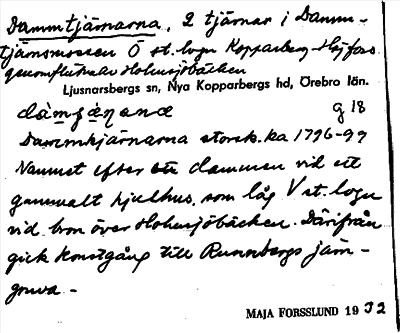 Dammtjärnarna, 2 tjärnar i Damm-
tjärnsmossen Ö st. lagu Kopparberg-Höjfors
genomflutna av Holmsjöbäcken
Ljusnarsbergs sn, Nya Kopparbergs hd, Örebro län.
dàmʃæ̣ṇaṇa g 18
Dammkjärnarna storsk.ka 1796-99
Namnet efter en dammen vid ett
gammalt hjulhus, som låg V st. lagu
vid bron över Holmsjöbäcken. Därifrån
gick konstgång till Runnbergs järn-
gruva.-
MAJA FORSSLUND 19 32